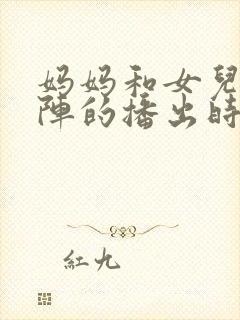 妈妈和女兒
陣的播出時
紅九